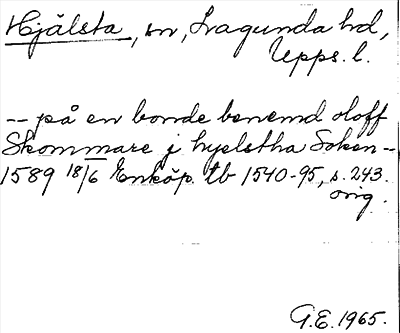 Hjälsta, sn, Lagunda hd,
Upps. l.
-- på en bonde benemd oloff
Skommare j hyelstha Soken --
1589 18/6 Enköp. tb 1540-95, s. 243.
orig.
G.E. 1965.